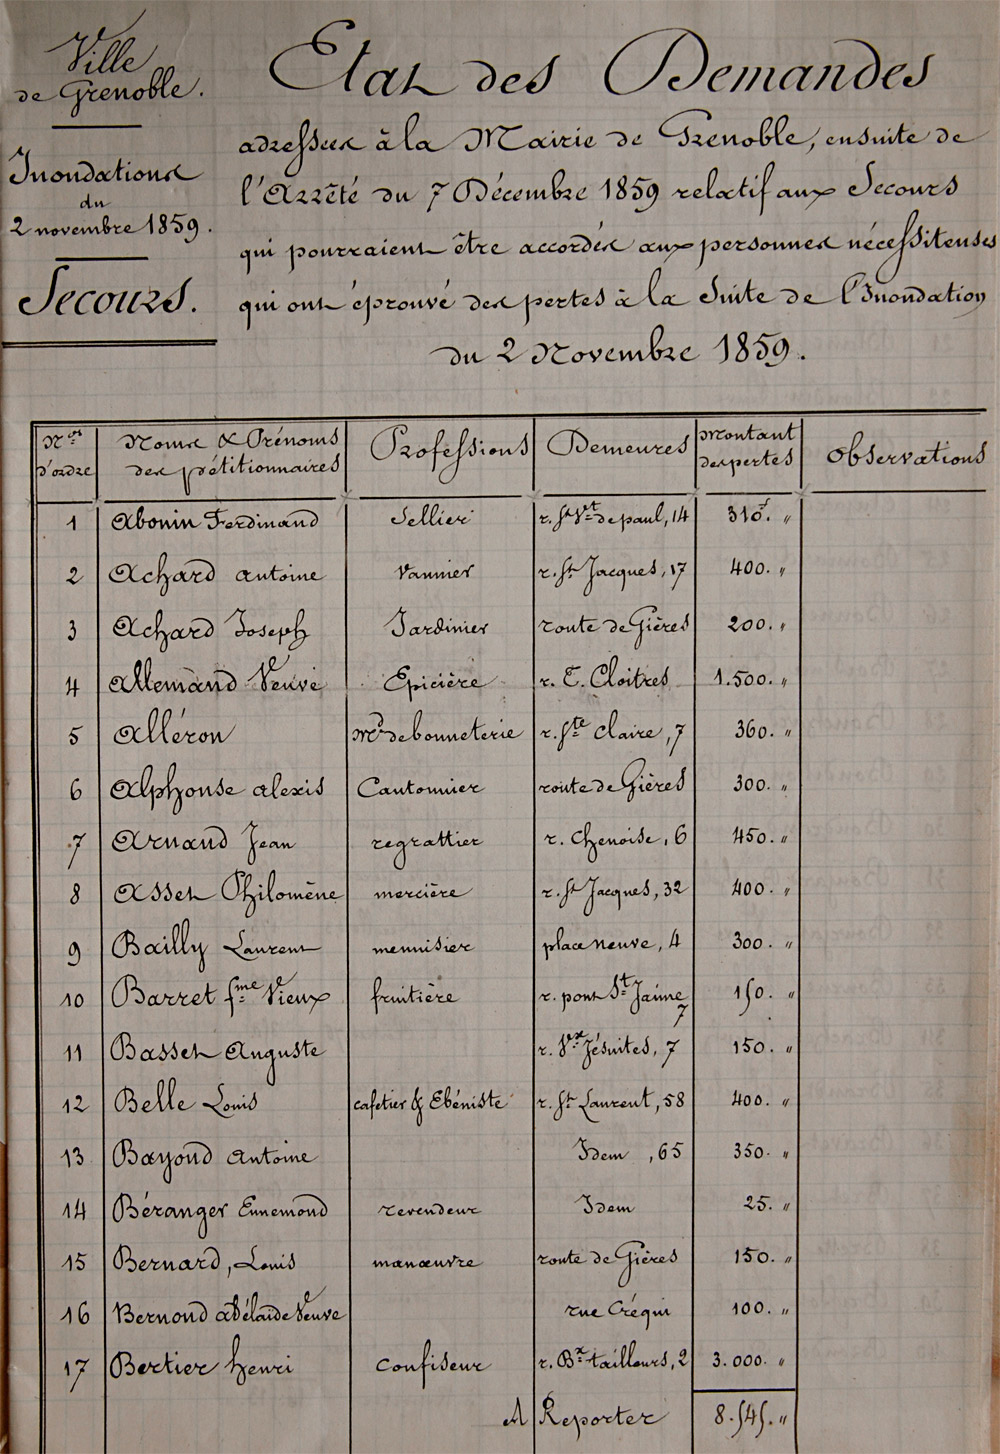 Ville
de Grenoble.
Inondations
du
2 novembre 1859.
Secours.
Etat des Demandes
adressées à la Mairie de Grenoble, ensuite de
l'Arrêté du 7 Décembre 1859 relatif aux Secours
qui pourraient être accordés aux personnes nécessiteuses
qui ont éprouvé des pertes à la Suite de l'Inondation
du 2 Novembre 1859.
Nos d'ordre | Noms & Prénoms des pétitionnaires | Professions | Demeures | Montant des pertes | Observations
1 Abonin Ferdinand Sellier r. St Vt de paul, 14 310f. "
2 Achard antoine Vannier r. St Jacques, 17 400. "
3 Achard Joseph Jardinier route de Gières 200. "
4 Allemand Veuve Epicière r. T. Cloitres 1.500. "
5 Alléron md de bonneterie r. Ste Claire, 7 360. "
6 Alphonse alexis Cantonnier route de Gières 300. "
7 Arnaud Jean regrattier r. Chenoise, 6 450. "
8 Asset Philomène mercière r. St Jacques, 32 400. "
9 Bailly Laurent menuisier place neuve, 4 300. "
10 Barret fme Vieux fruitière r. pont St Jaime 7 150. "
11 Basset Auguste r. Vx Jésuites, 7 150. "
12 Belle Louis cafetier & Ebéniste r. St Laurent, 58 400. "
13 Bayoud antoine Idem, 65 350. "
14 Béranger Ennemond revendeur Idem 25. "
15 Bernard, Louis manœuvre route de Gières 150. "
16 Bernond adélaïde Veuve rue Créqui 100. "
17 Bertier henri Confiseur r. Bx tailleurs, 2 3.000. "
A Reporter 8.545. "